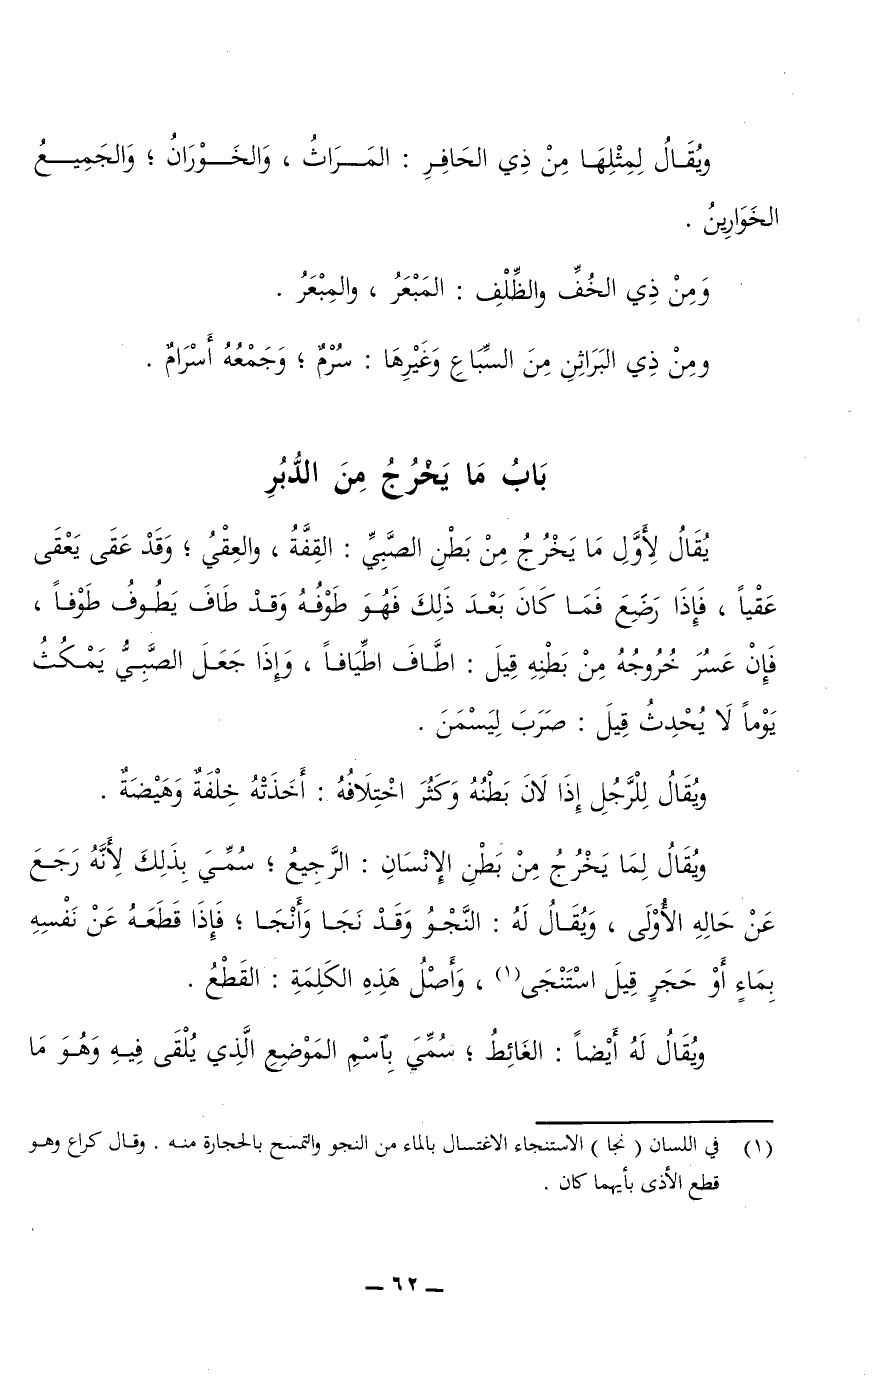 ويُقَالُ لِمِثْلِهَا مِنْ ذِي الحَافِرِ : المَرَاثُ ، وَالخَوْرَانُ ؛ وَالجَمِيعُ
الخَوَارِينُ .
وَمِنْ ذِي الخُفِّ والظِّلْفِ : المَبْعَرُ ، والمِبْعَرُ .
ومِنْ ذِي البَرَاثِنِ مِنَ السِّبَاعِ وَغَيْرِهَا : سُرْمٌ ؛ وَجَمْعُهُ أَسْرَامٌ .
بَابُ مَا يَخْرُجُ مِنَ الدُّبُرِ
يُقَالُ لِأَوَّلِ مَا يَخْرُجُ مِنْ بَطْنِ الصَّبِيِّ : القِقَّةُ ، والعِقْيُ ؛ وَقَدْ عَقَى يَعْقَى
عَقْياً ، فَإِذَا رَضَعَ فَمَا كَانَ بَعْدَ ذَلِكَ فَهُوَ طَوْفُهُ وَقَدْ طَافَ يَطُوفُ طَوْفاً ،
فَإِنْ عَسُرَ خُرُوجُهُ مِنْ بَطْنِهِ قِيلَ : اطَّافَ اطِّيَافاً ، وَإِذَا جَعَلَ الصَّبِيُّ يَمْكُثُ
يَوْماً لَا يُحْدِثُ قِيلَ : صَرَبَ لِيَسْمَنَ .
ويُقَالُ لِلْرَّجُلِ إِذَا لَانَ بَطْنُهُ وَكَثُرَ اخْتِلَافُهُ : أَخَذَتْهُ خِلْفَةٌ وَهَيْضَةٌ .
ويُقَالُ لِمَا يَخْرُجُ مِنْ بَطْنِ الإِنْسَانِ : الرَّجِيعُ ؛ سُمِّيَ بِذَلِكَ لِأَنَّهُ رَجَعَ
عَنْ حَالِهِ الأُوْلَى ، وَيُقَالُ لَهُ : النَّجْوُ وَقَدْ نَجَا وَأَنْجَا ؛ فَإِذَا قَطَعَهُ عَنْ نَفْسِهِ
بِمَاءٍ أَوْ حَجَرٍ قِيلَ اسْتَنْجَى(١) ، وَأَصْلُ هَذِهِ الكَلِمَةِ : القَطْعُ .
ويُقَالُ لَهُ أَيْضاً : الغَائِطُ ؛ سُمِّيَ بِآسْمِ المَوْضِعِ الَّذِي يُلْقَى فِيهِ وَهُوَ مَا
(١) في اللسان ( نجا ) الاستنجاء الاغتسال بالماء من النجو والتمسح بالحجارة منه . وقال كراع وهو
قطع الأذى بأيهما كان .
ـ ٦٢ ـ